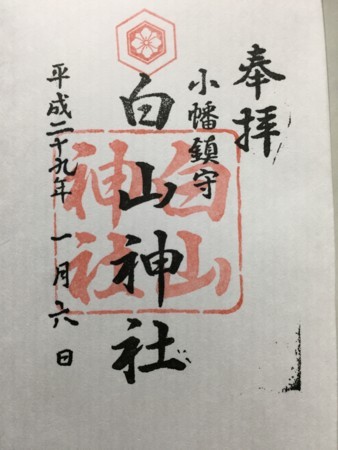 奉拝
小幡鎮守
白山神社
白山
神社
平成二十九年 一月六日